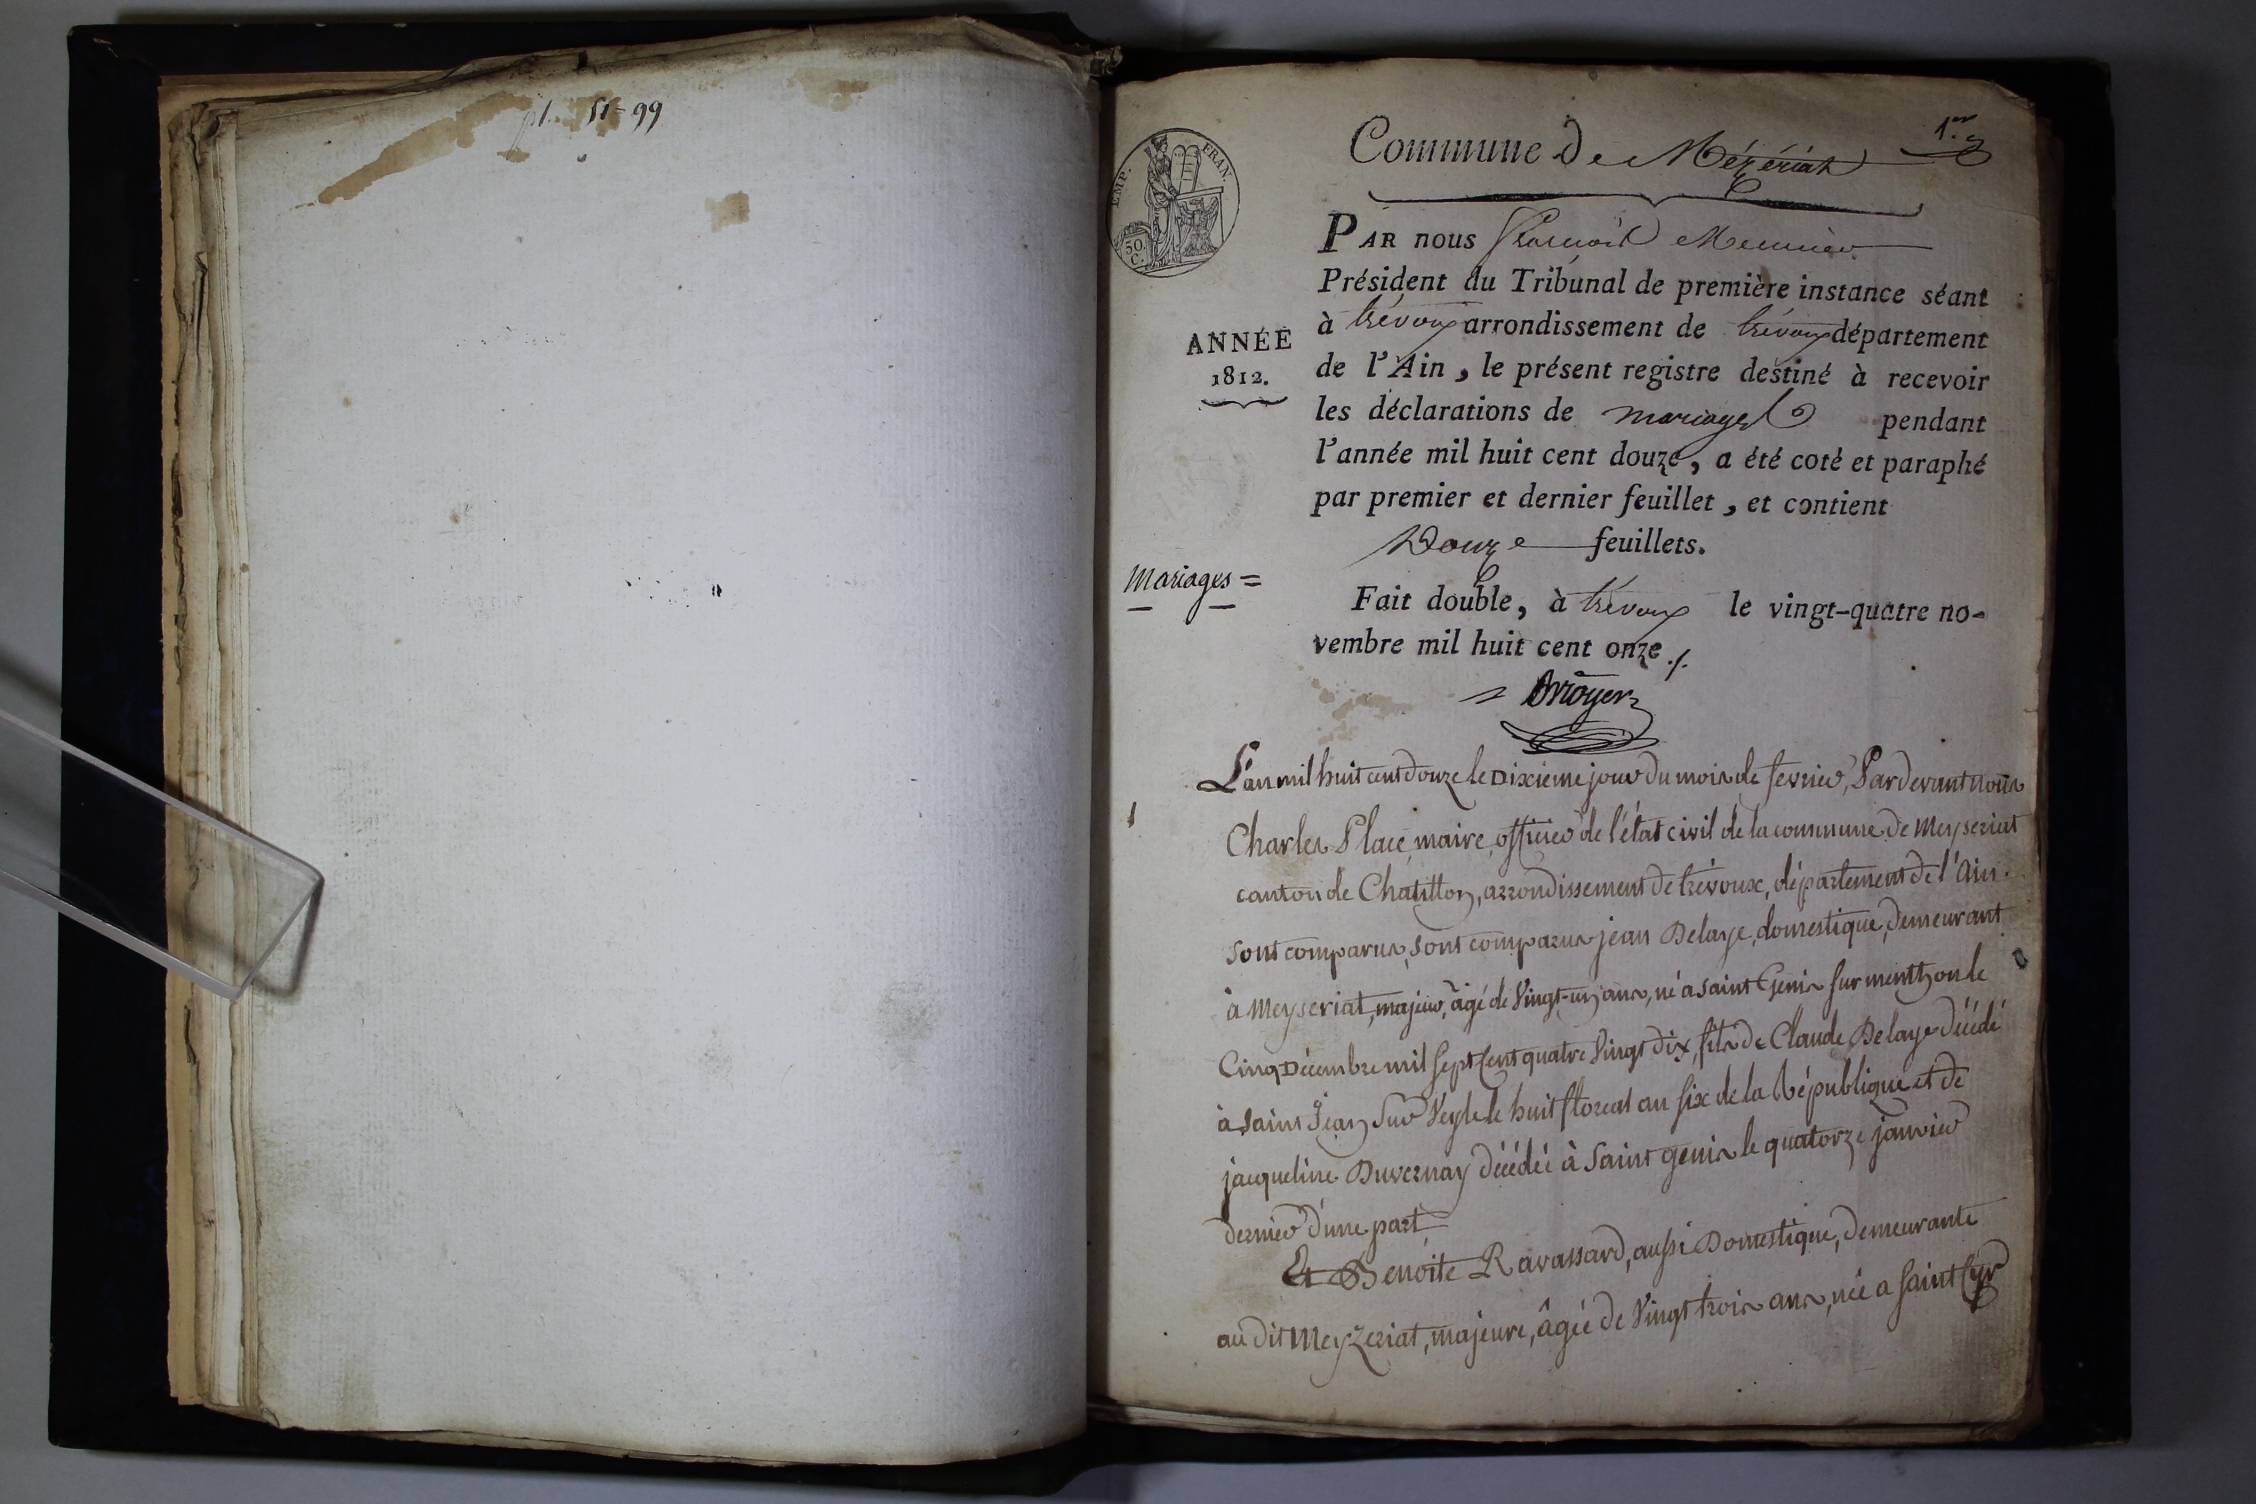 51-99
Commune de Mézériat
1.er
EMP. FRAN.
50. C.
PAR nous François Meunier
Président du Tribunal de première instance séant
à trévoux arrondissement de trévoux département
ANNÉE
1812.
de l'Ain, le présent registre destiné à recevoir
les déclarations de mariages pendant
l'année mil huit cent douze, a été coté et paraphé
par premier et dernier feuillet, et contient
Douze feuillets.
Mariages =
Fait double, à trévoux le vingt-quatre no-
vembre mil huit cent onze ./.
L'an mil huit cent douze le Dixieme jour du mois de fevrier, Pardevant nous
1
Charles Place, maire, officier de l'état civil de la commune de Meyseriat
canton de Chatillon, arrondissement de trévoux, département de l'Ain.
sont comparus, sont comparus jean Delaye, domestique, demeurant
à Meyseriat, majeur, âgé de Vingt-un ans, né a saint Genis sur menthon le
Cinq Décembre mil sept Cent quatre Vingt dix, fils de Claude Delaye décédé
à saint Jean sur Veyle le huit floreal an six de la République et de
jacqueline Duvernay décédée à saint genis le quatorze janvier
dernier d'une part,
Et Benoite Ravassard, aussi Domestique, demeurante
au dit Meyzeriat, majeure, âgée de Vingt trois ans, née a saint Cyr